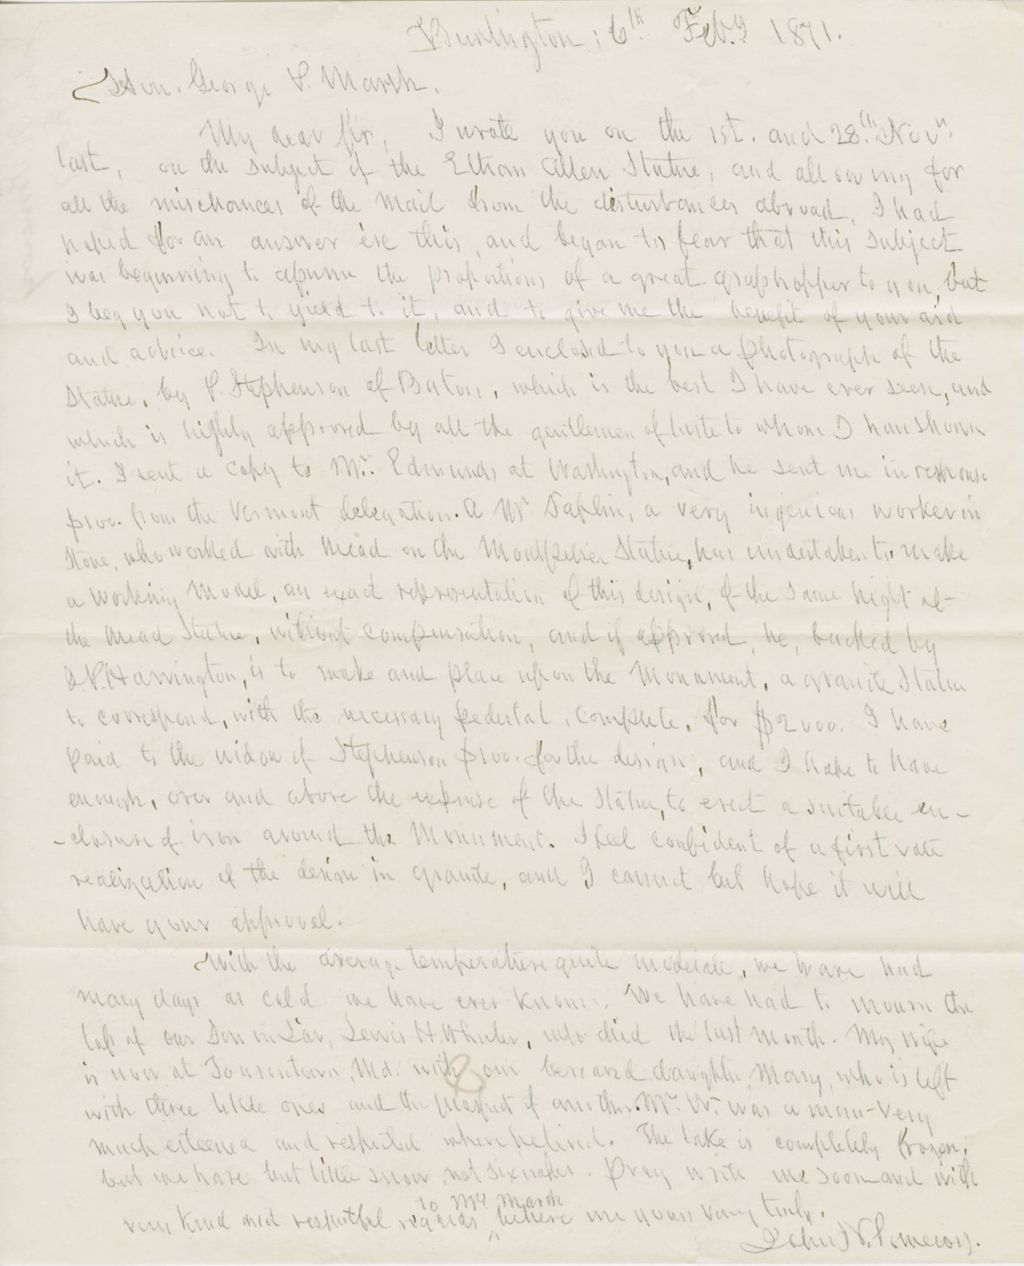 Burlington, 6th Feby 1871.
Hon. George P. Marsh.
My dear Sir, I wrote you on the 1st. and 28th Novr.
last, on the subject of the Ethan Allen Statue, and allowing for
all the mischances of the mail from the disturbances abroad, I had
hoped for an answer ere this, and began to fear that this subject
was beginning to assume the proportions of a great grasshopper to you, but
I beg you not to yield to it, and to give me the benefit of your aid
and advice. In my last letter I enclosed to you a photograph of the
Statue, by P. Stephenson of Boston, which is the best I have ever seen, and
which is highly approved by all the gentlemen of taste to whom I have shown
it. I sent a copy to Mr. Edmunds at Washington, and he sent me in response
$100. from the Vermont delegation. A Mr. a very ingenious worker in
Stone, who worked with Mead on the Montpelier Statue, has undertaken to make
a working Model, an exact representation of this design, of the same hight of
the Mead Statue, without compensation, and if approved, he, backed by
Harrington, is to make and place upon the Monument, a granite Statue
to correspond, with the necessary pedestal, complete, for $2000. I have
paid to the widow of Stephenson $100. for the design, and I hope to have
enough, over and above the expense of the Statue, to erect a suitable en-
-closure of iron around the Monument. I feel confident of a first rate
realization of the design in granite, and I cannot but hope it will
have your approval.
With the average temperature quite moderate, we have had
many days as cold we have ever known. We have had to mourn the
loss of our Son in Law, Lewis H. Wheeler, who died the last month. My wife
is now at Towsontown, Md. with our bereaved daughter, Mary, who is left
with three little ones and the prospect of another. Mr. W. was a man very
much esteemed and respected where he lived. The lake is completely frozen;
but we have but little snow, not six inches. Pray write me soon and with
very kind and respectful regards to Mrs Marsh believe me yours very truly,
John N. Pomeroy.